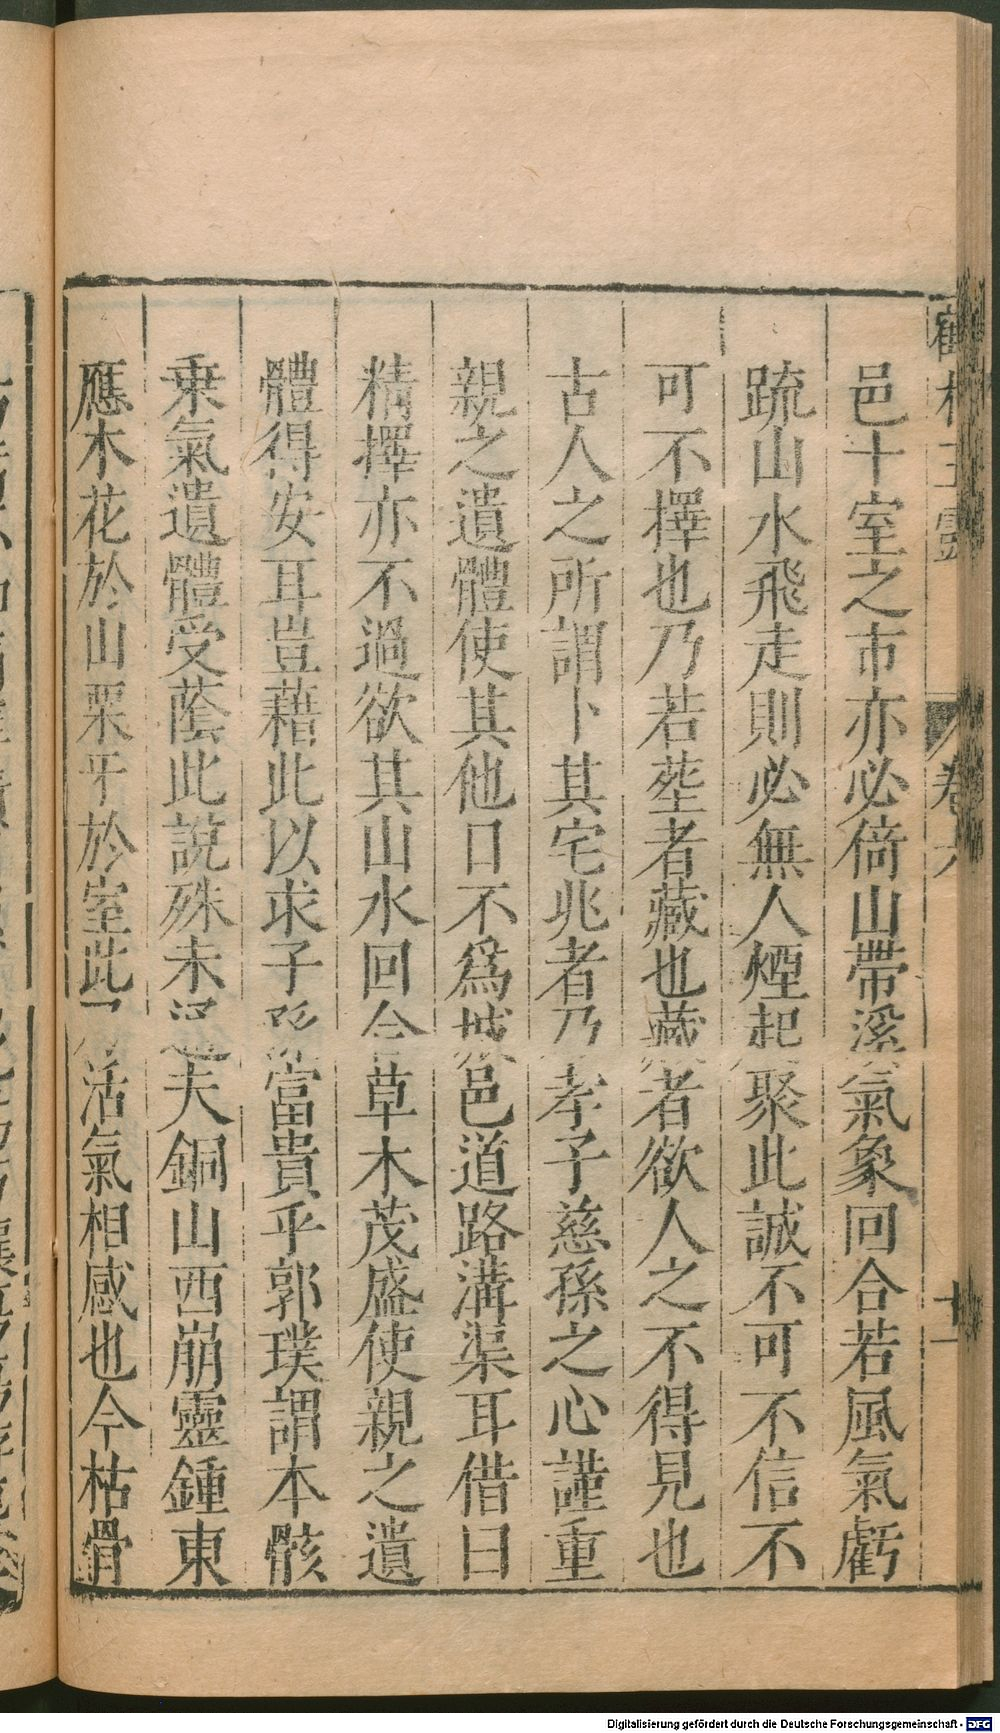 鶴林玉露 卷六 十一
邑十室之市亦必倚山帶溪氣象回合若風氣虧
疏山水飛走則必無人煙起聚此誠不可不信不
可不擇也乃若塟者藏也藏者欲人之不得見也
古人之所謂卜其宅兆者乃孝子慈孫之心謹重
親之遺體使其他日不爲城邑道路溝渠耳借曰
精擇亦不過欲其山水回合草木茂盛使親之遺
體得安耳豈藉此以求子孫富貴乎郭璞謂本骸
乗氣遺體受蔭此說殊未通夫銅山西崩靈鍾東
應木花於山栗牙於室此乃活氣相感也今枯骨
Digitalisierung gefördert durch die Deutsche Forschungsgemeinschaft - DFG